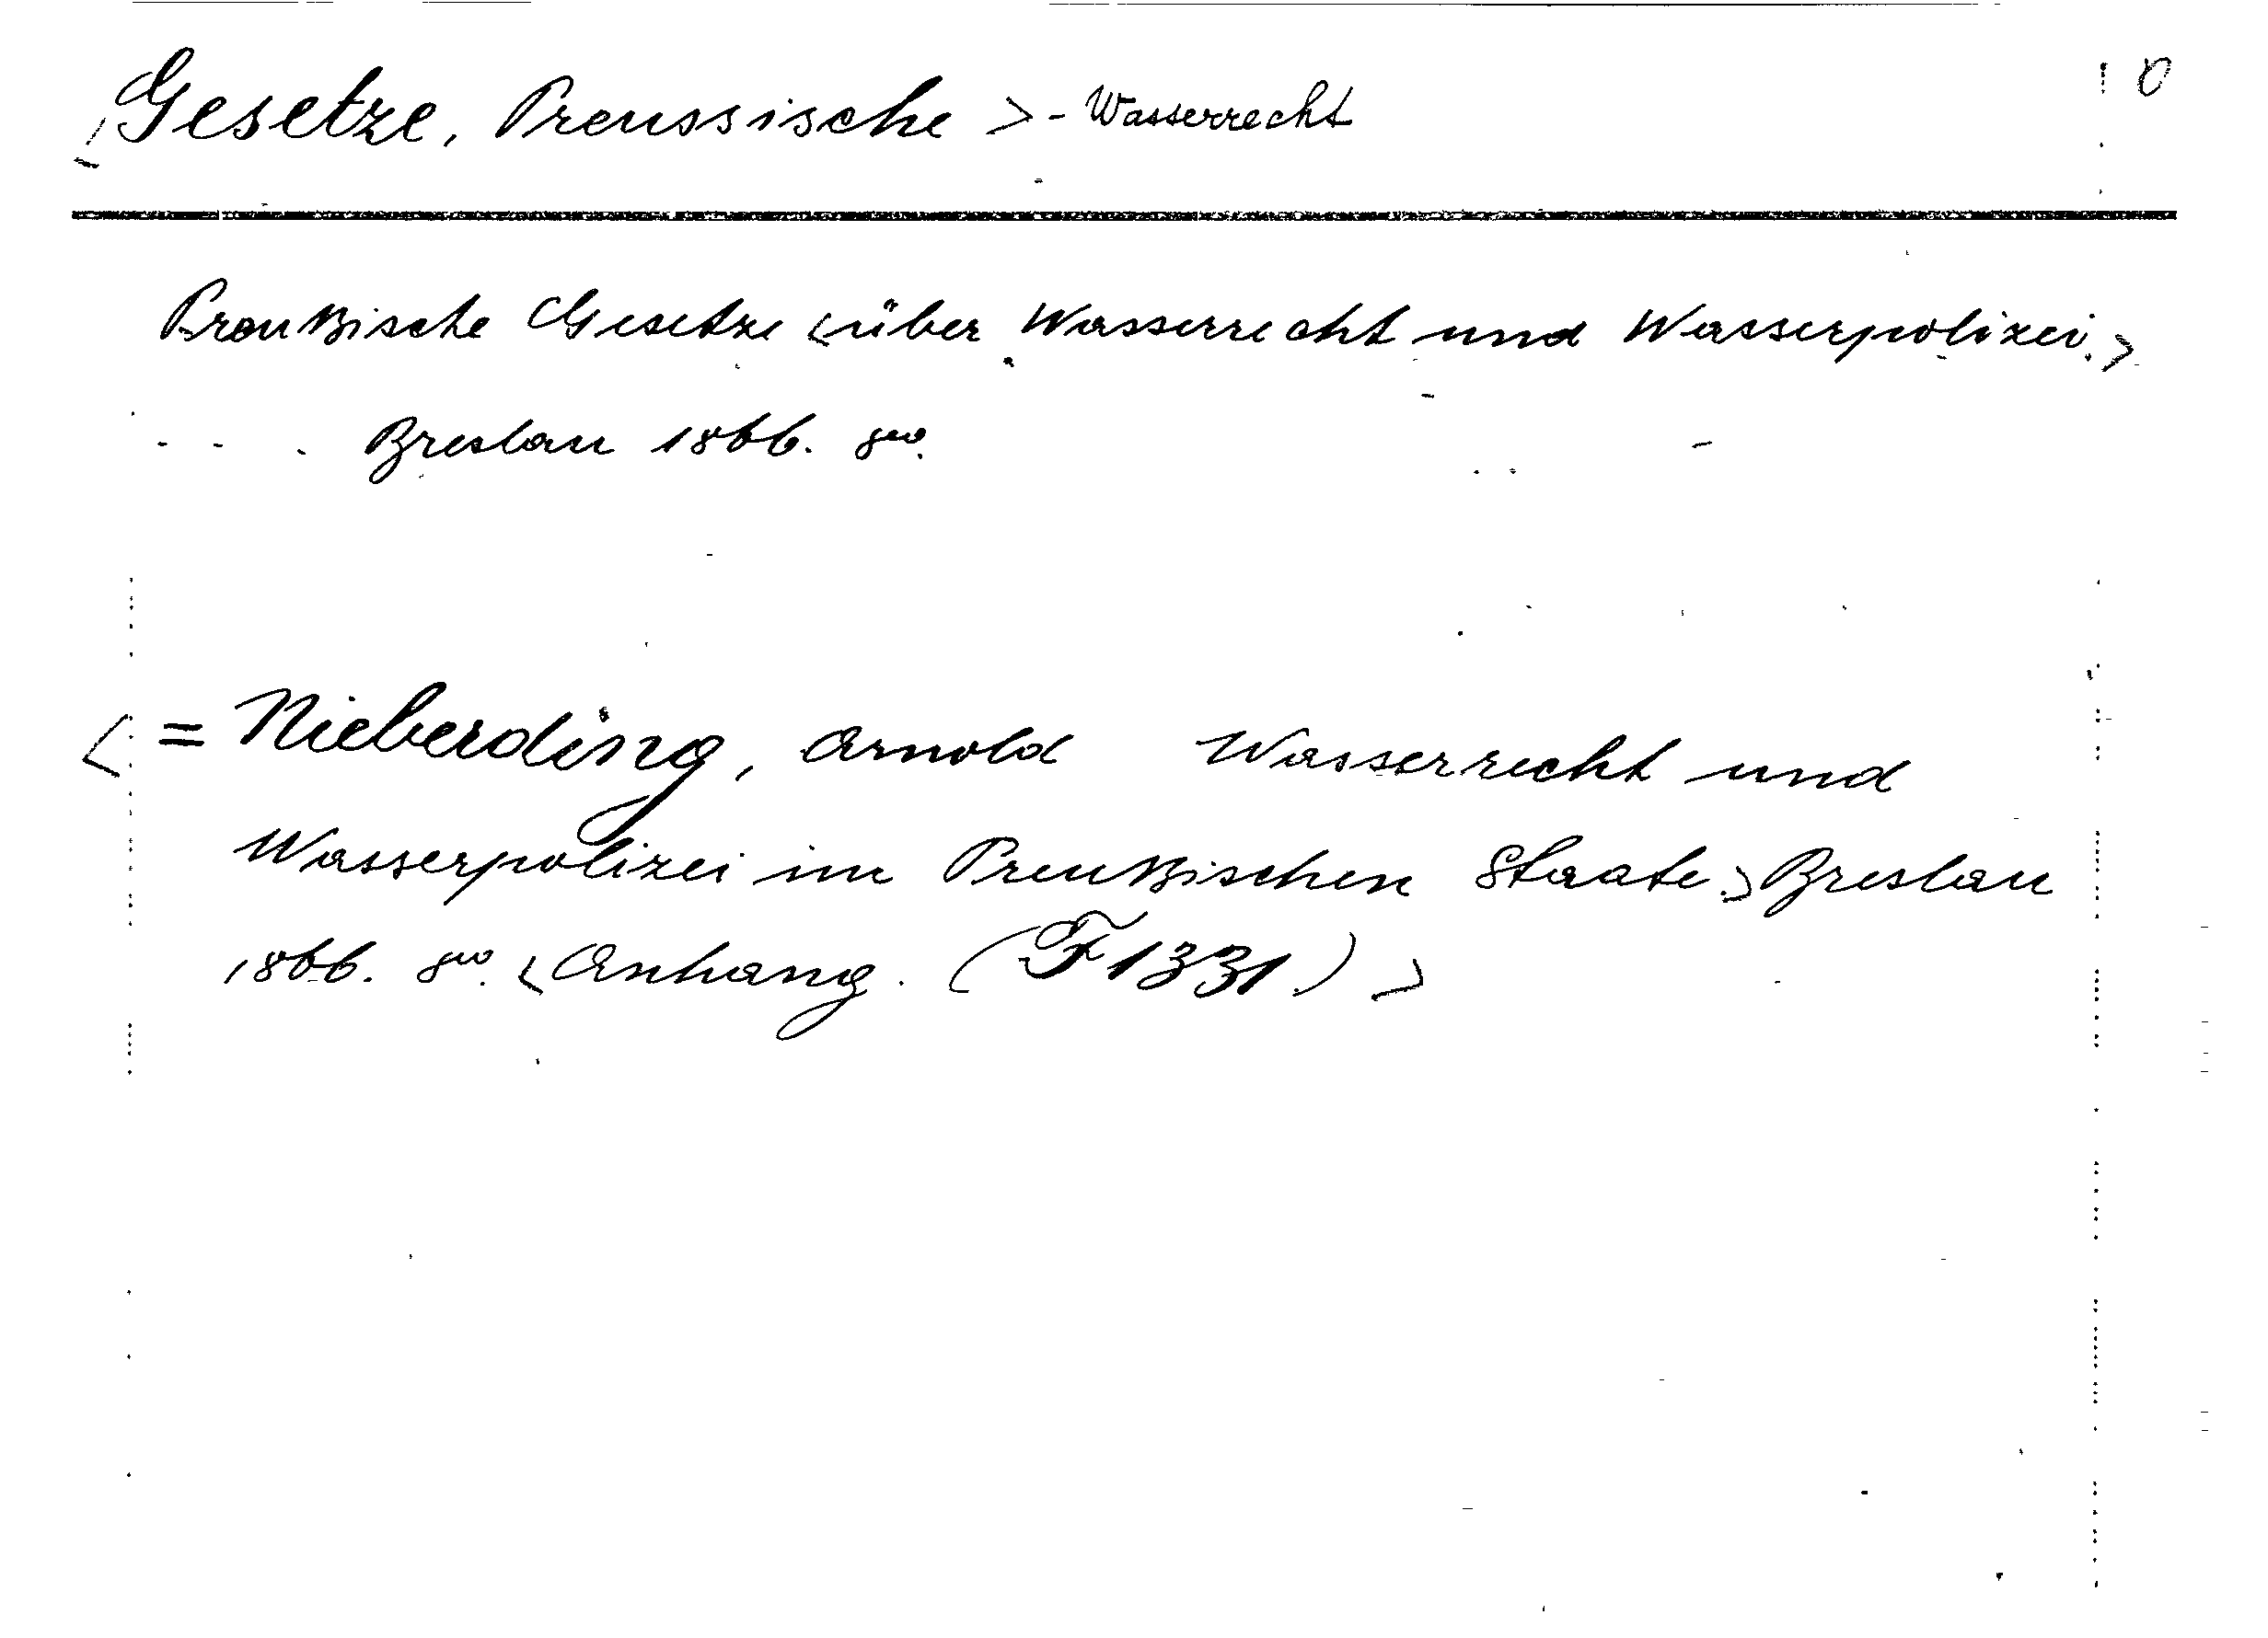 <Gesetze, Preussische > - Wasserrecht 0
Preußische Gesetze <über Wasserrecht und Wasserpolizei.>
Breslau 1866. 8vo.
< = Nieberding, Arnold Wasserrecht und
Wasserpolizei im Preußischen Staate.> Breslau
1866. 8vo. <Anhang. (F 1331.) >